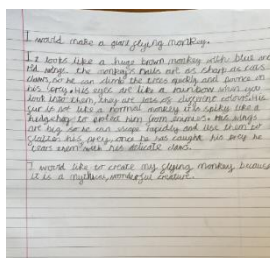 I would make a giant flying monkey.
It looks like a huge brown monkey with blue and
red wings. the monkey's nails are as sharp as cats
claws, so he can climb the trees quickly and pounce on
his prey. His eyes are like a rainbow when you
look into them, they are lots of different colours. His
fur is not like a normal monkey it is spiky like a
hedgehog to protect him from enimies. His wings
are big so he can swipe rapidly and use them to
flatten his prey, once he has caught his prey he
tears them with his delicate claws.
I would like to create my flying monkey because
it is a mythical, wonderful creature.